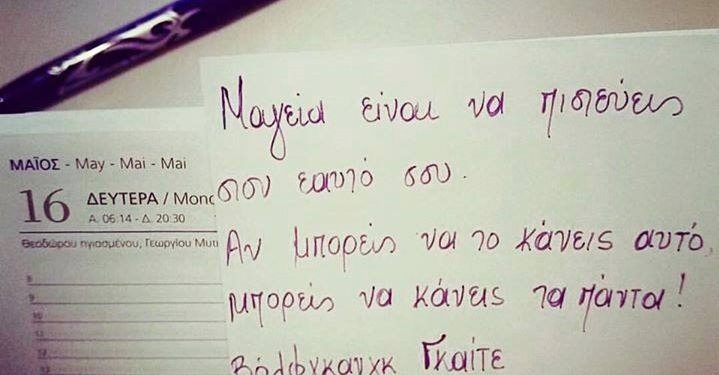 Μαγεία είναι να πιστεύεις
στον εαυτό σου.
Αν μπορείς να το κάνεις αυτό,
μπορείς να κάνεις τα πάντα!
Βόλφγκανγκ Γκαίτε
ΜΑΪΟΣ - May - Mai - Mai
16 ΔΕΥΤΕΡΑ / Mond
Α. 06:14 - Δ. 20:30
Θεοδώρου ηγιασμένου, Γεωργίου Μυτι
8
9
10
11
12